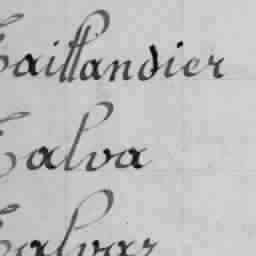 Taillandier
Talva
Talvas